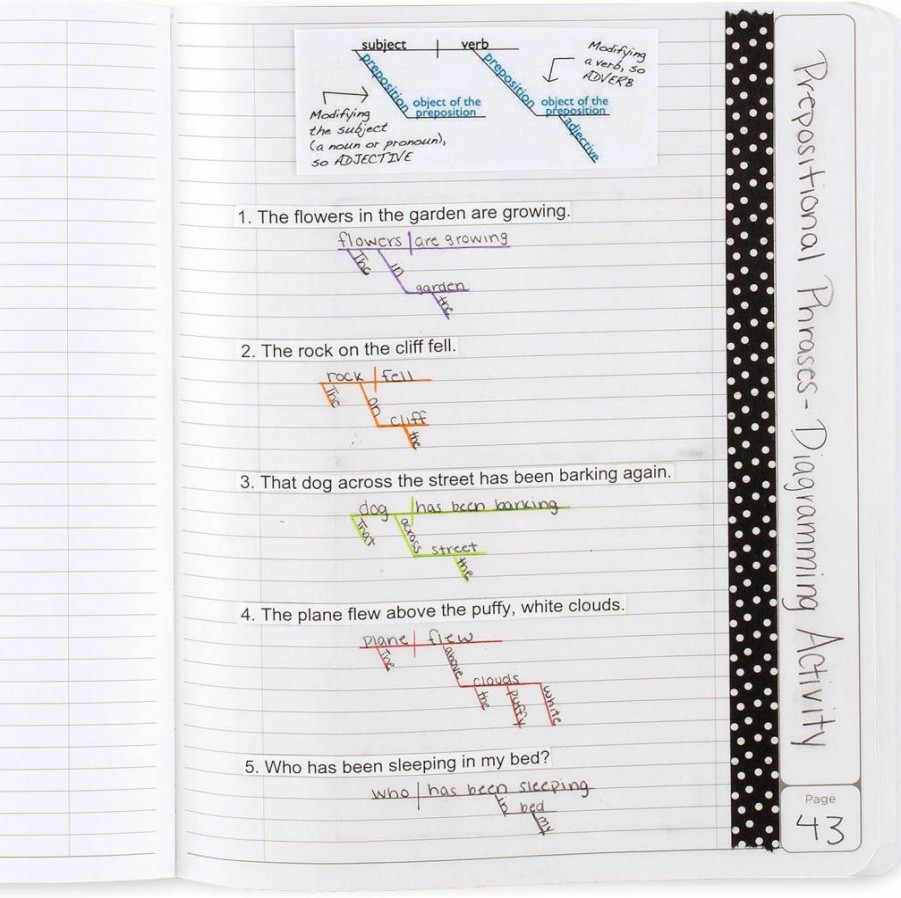 subject | verb
preposition
object of the
preposition
preposition
object of the
preposition
adjective
Modifying
the subject
(a noun or pronoun),
so ADJECTIVE
Modifying
a verb, so
ADVERB
1. The flowers in the garden are growing.
flowers | are growing
The
in
garden
the
2. The rock on the cliff fell.
rock | fell
The
on
cliff
the
3. That dog across the street has been barking again.
dog | has been barking
That
across
street
the
4. The plane flew above the puffy, white clouds.
plane | flew
The
above
clouds
the
puffy
white
5. Who has been sleeping in my bed?
who | has been sleeping
in
bed
my
Prepositional Phrases - Diagramming Activity
Page
43